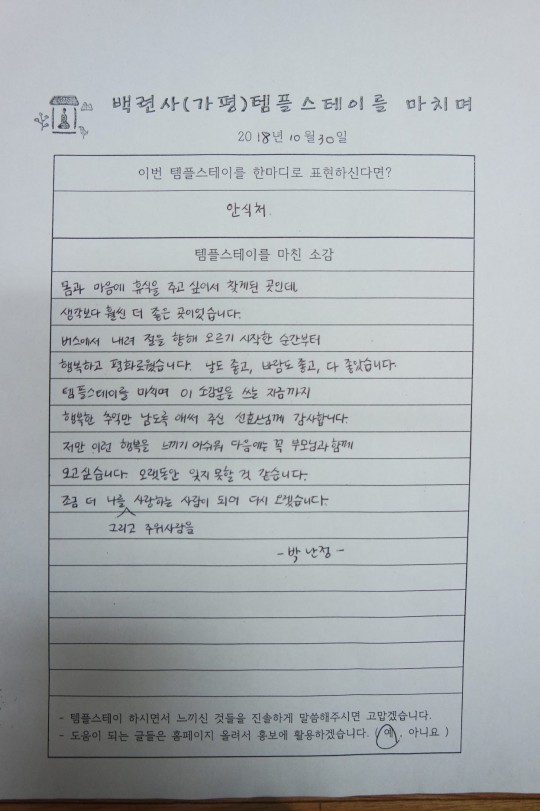 백련사(가평)템플스테이를 마치며
2018년 10월 30일
이번 템플스테이를 한마디로 표현하신다면?
안식처.
템플스테이를 마친 소감
몸과 마음에 휴식을 주고 싶어서 찾게된 곳인데,
생각보다 훨씬 더 좋은 곳이었습니다.
버스에서 내려 절을 향해 오르기 시작한 순간부터
행복하고 평화로웠습니다. 날도 좋고, 바람도 좋고, 다 좋았습니다.
템플스테이를 마치며 이 소감문을 쓰는 지금까지
행복한 추억만 남도록 애써 주신 선효스님께 감사합니다.
저만 이런 행복을 느끼기 아쉬워 다음에는 꼭 부모님과 함께
오고싶습니다. 오랫동안 잊지 못할 것 같습니다.
조금 더 나를 사랑하는 사람이 되어 다시 오겠습니다.
그리고 주위사람을
- 박난정 -
- 템플스테이 하시면서 느끼신 것들을 진솔하게 말씀해주시면 고맙겠습니다.
- 도움이 되는 글들은 홈페이지 올려서 홍보에 활용하겠습니다. ( 예, 아니요 )